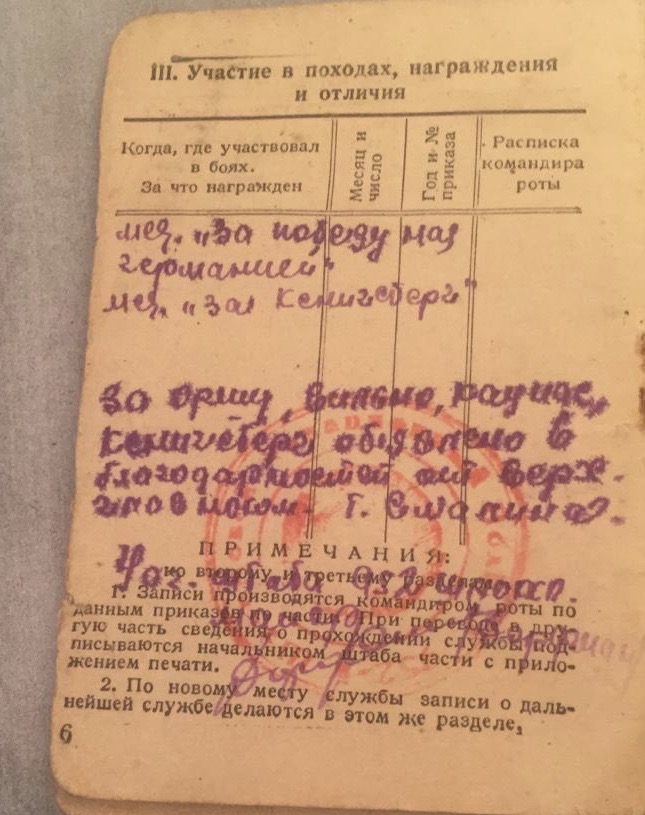 III. Участие в походах, награждения
и отличия
Когда, где участвовал
в боях.
За что награжден
Месяц и
число
Год и №
приказа
Расписка
командира
роты
мед. „За победу над
германией“
мед. „За Кенигсберг“
За оршу, вильно, каунас,
Кенигсберг объявлено
благодарностей от верх.
Г. Сталина.
ПРИМЕЧАНИЯ:
ко второму и третьему разделам
1. Записи производятся командиром роты по
данным приказов по части. При переводе в дру-
гую часть сведения о прохождении службы под-
писываются начальником штаба части с прило-
жением печати.
штаба
2. По новому месту службы записи о даль-
нейшей службе делаются в этом же разделе.
6